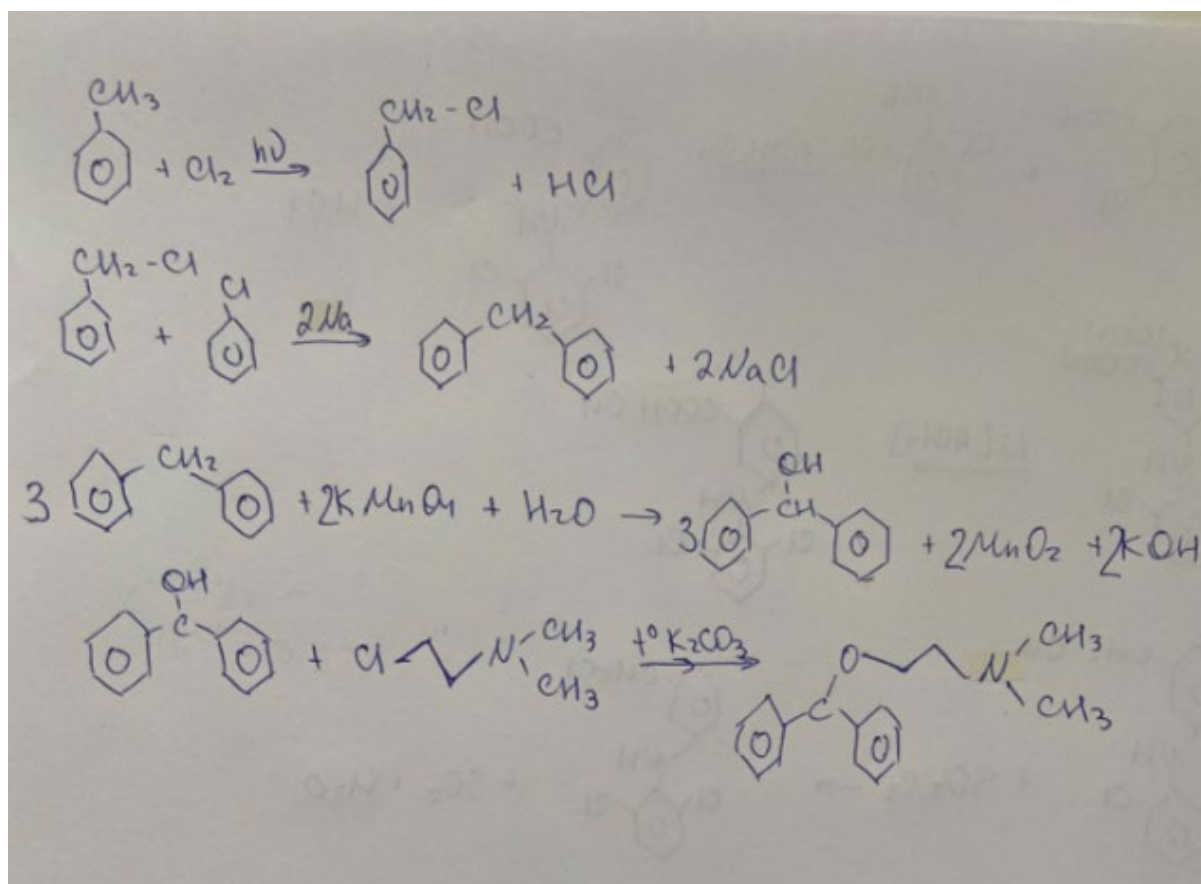 CH3 + Cl2 hν → CH2-Cl + HCl
CH2-Cl + Cl 2Na → CH2 + 2NaCl
3 CH2 + 2KMnO4 + H2O → 3 OH CH + 2MnO2 + 2KOH
OH C + Cl N CH3 CH3 t° K2CO3 → O C N CH3 CH3